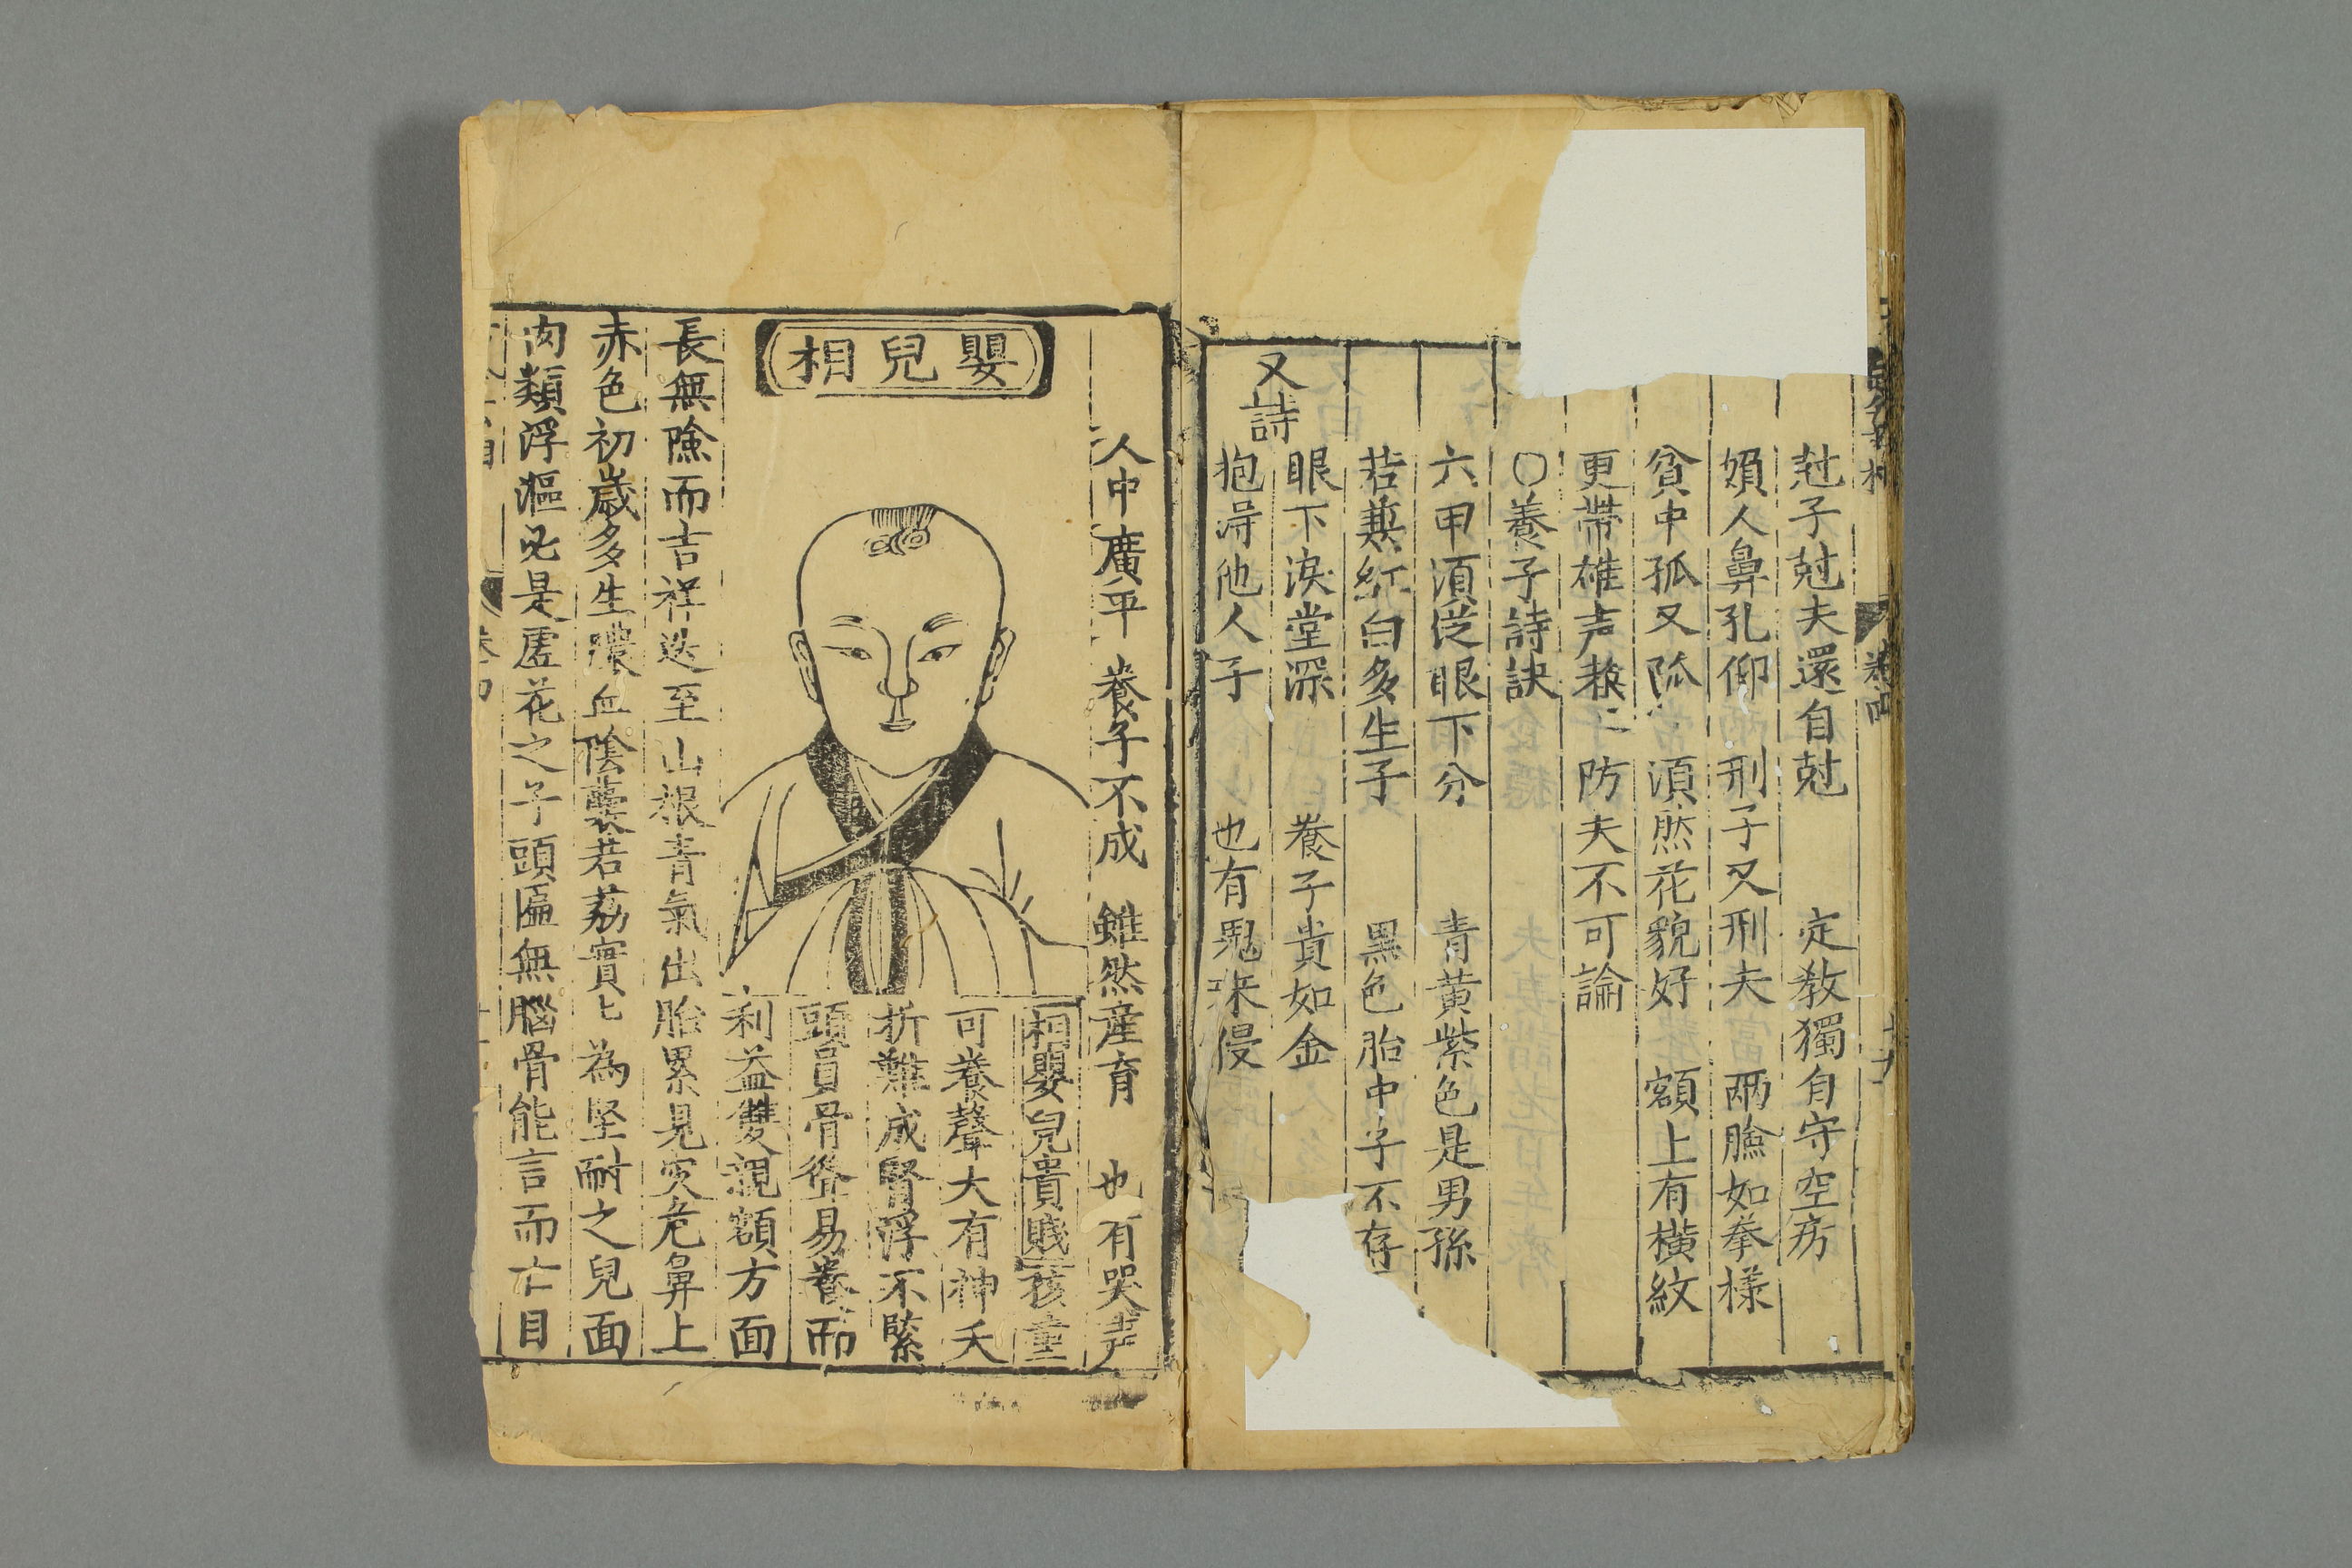 尅子尅夫還自尅 定教獨自守空房
娘人鼻孔仰 刑子又刑夫 兩臉如拳樣
貧中孤又孤 須然花貌好 額上有橫紋
更帶雄声殺 防夫不可論
○養子詩訣
六甲須從眼下分 青黃紫色是男孫
若兼紅白多生子 黑色胎中子不存
又詩
眼下淚堂深 養子貴如金
抱得他人子 也有鬼來侵
卷四
人中廣平 養子不成 雖然產育 也有哭声
嬰兒相
相嬰兒貴賤 孩童
可養聲大有神夭
折難成腎浮不緊
頭員骨聳易養而
利益雙親額方面
長無險而吉祥迭至山根青氣出胎累見灾危鼻上
赤色初歲多生膿血陰囊若荔實匕為堅耐之兒面
肉類浮漚必是虛花之子頭匾無腦骨能言而亡目